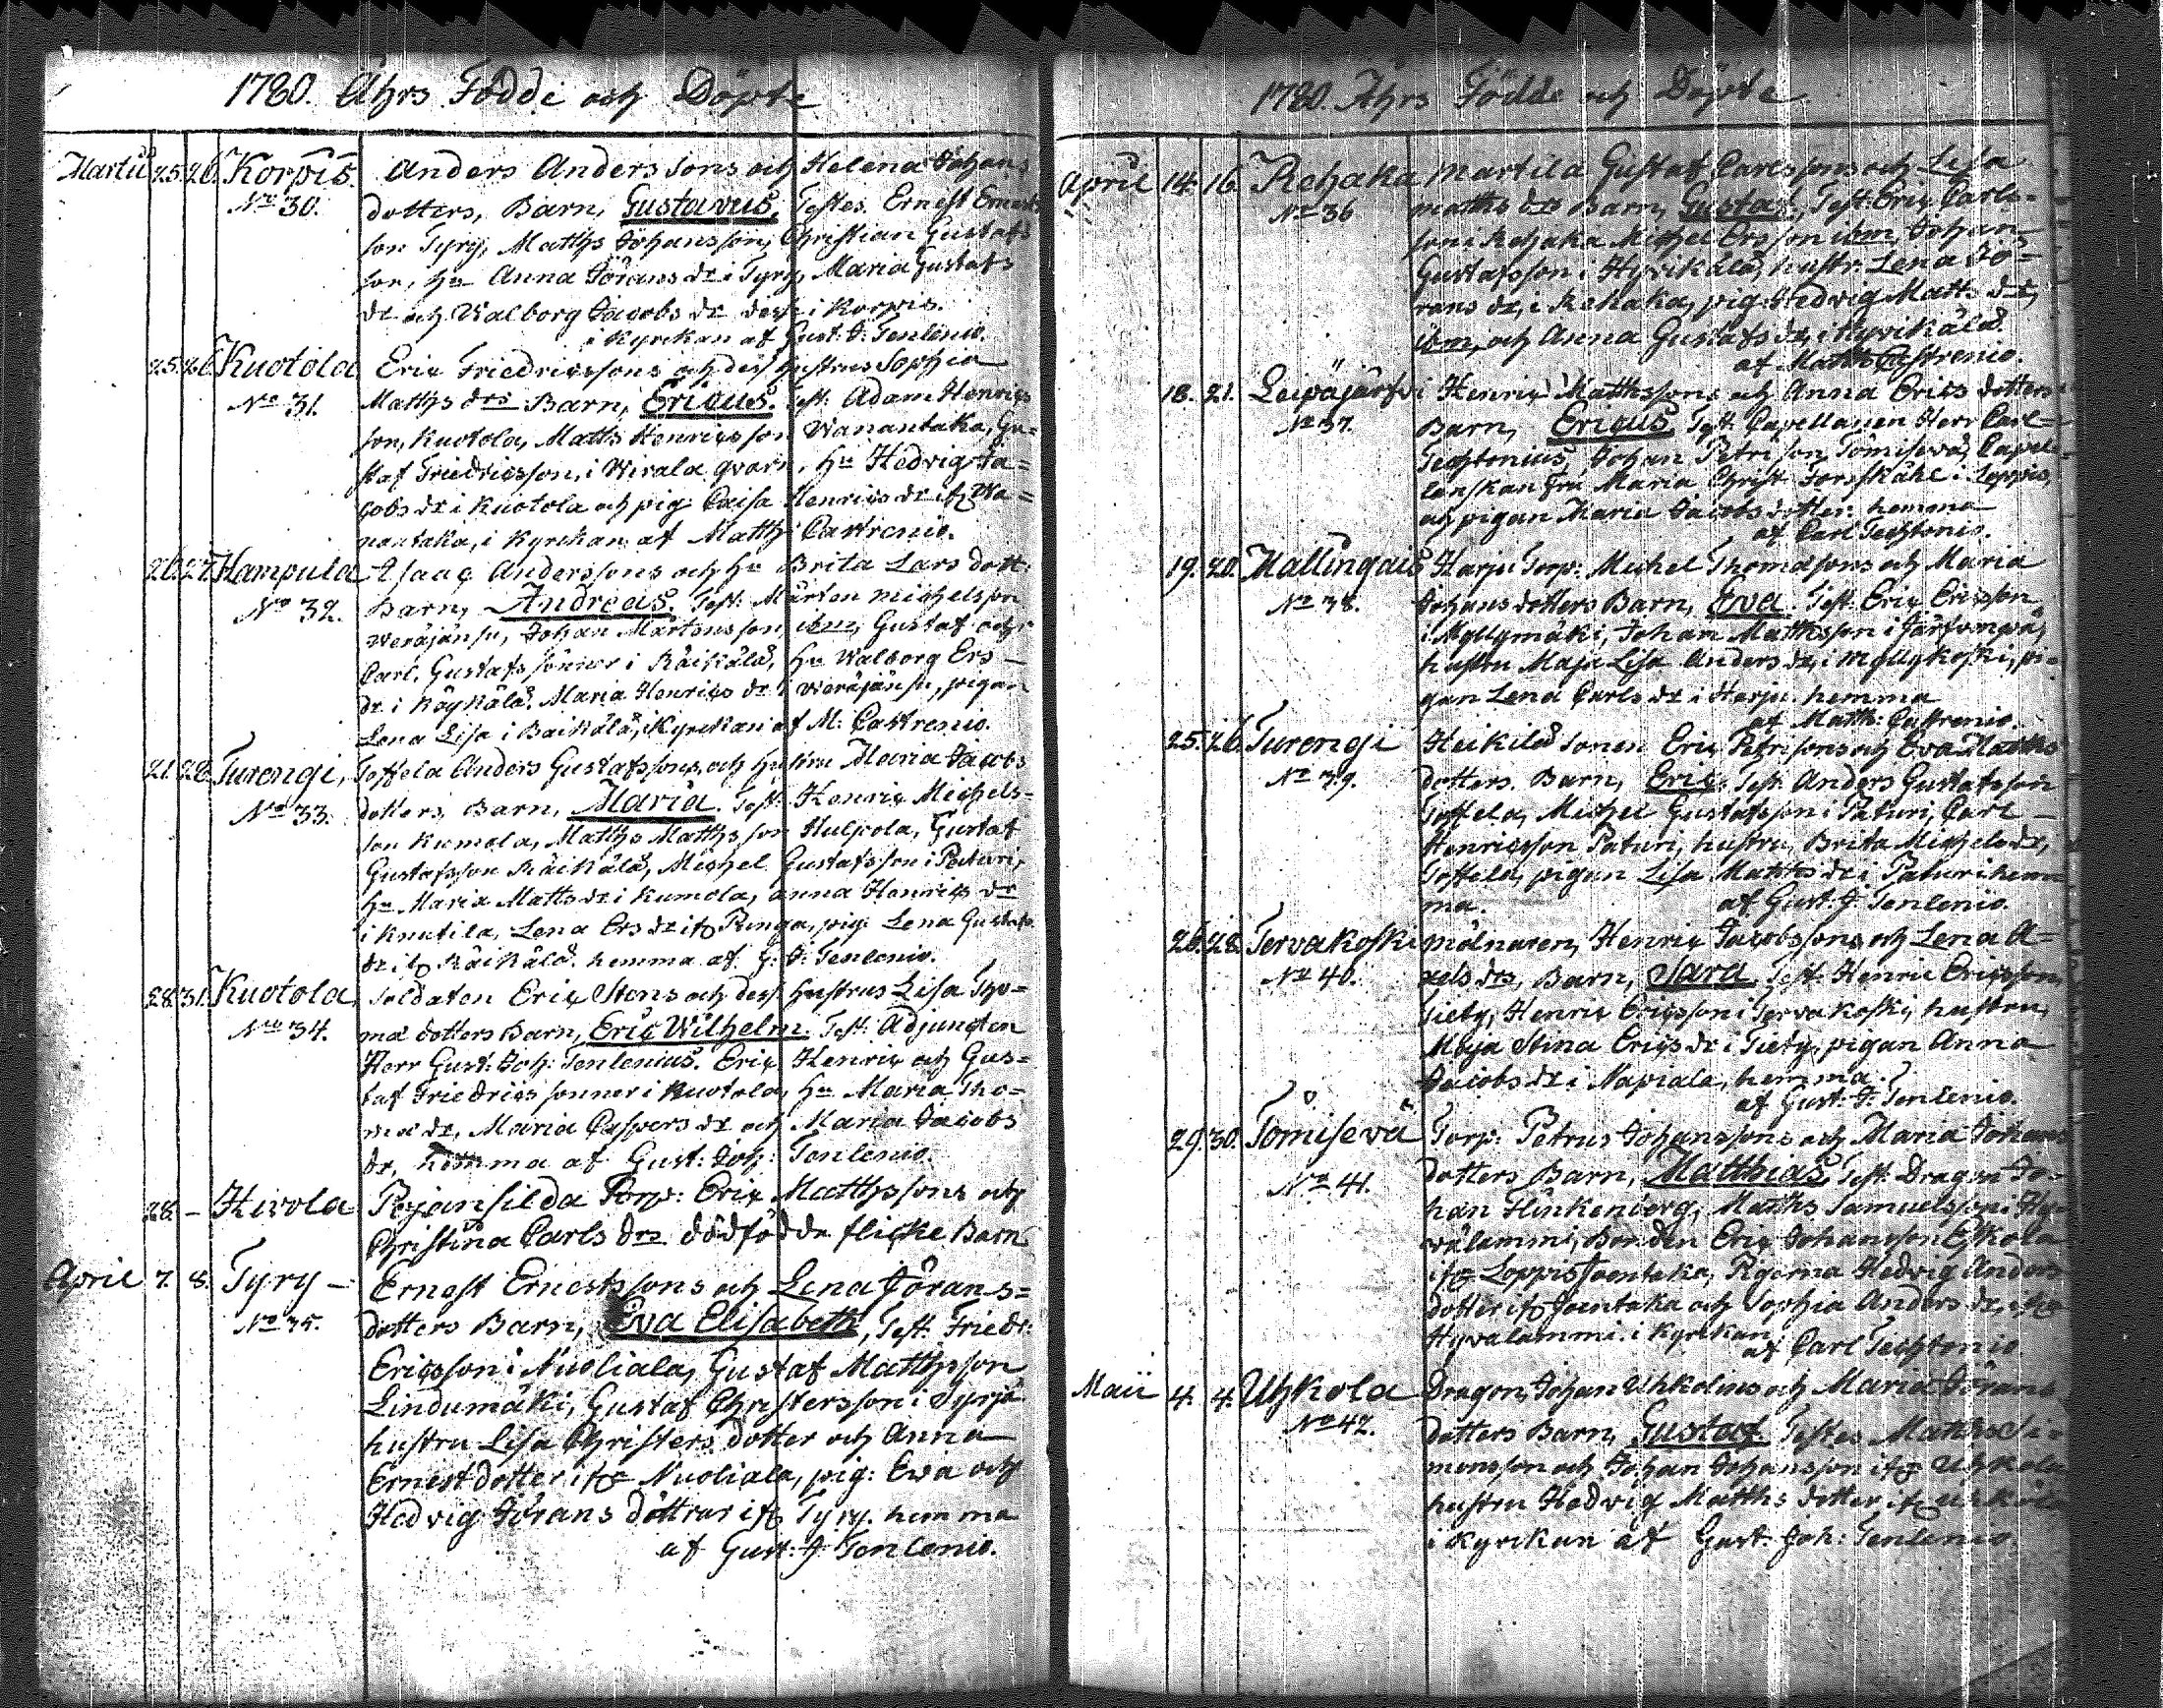 1780. Åhrs Födde och Döpte
Martii 25. 26. Korpis. Anders Anderssons och Helena Johans
No 30. dotters, Barn, Gustavus, Testes. Ernest Ernests
son Tyry, Matths Johansson, Christian Gustafs
son, Hu Anna Jörans dr i Tyry, Maria Gustafs
dr och Walborg Jacobs dr i Korpis.
i Kyrckan af Gust. J. Tenlenio.
25. 26. Kuotola Eric Friedricssons och dess hustrus Sophia
No 31. Matths drs Barn, Ericus. Test. Adam Henrics
son, Kuotola, Matts Henricsson Wanantaka, Gu=
staf Friedricsson, i Wirala qvarn, Hu Hedvig Ja=
cobs dr i Kuotola och pig. Caisa Henrics dr ifr Wa=
nantaka, i Kyrckan af Matth Castrenio.
26. 27. Hampula Isaac Anderssons och Hu Brita Lars dott.
No 32. Barn, Andreas. Test. Mårten Michelsson
Weräjänsu, Johan Mårtensson, ibm, Gustaf och
Carl, Gustafs sönner i Räikälä, Hu Walborg Ers
dr i Räykälä, Maria Henrics dr i Weräjänsu, pigan
Lena Lisa i Räikälä, i Kyrckan af M. Castrenio.
28. Turengi, Toffela Anders Gustafssons och hustru Maria Jacobs
No 33. dotters, Barn, Maria. Test. Henric Michels=
son Kumola, Matths Matthsson Hulpola, Gustaf
Gustafsson Räikälä, Michel Gustafsson i Paturi,
Hu Maria Matts dr i Kumola, Anna Henrics dr
i Knutila, Lena Ers dr ifr Punga, pig. Lena Gustafs
dr ifr Räikälä. hemma af G. J. Tenlenio.
28. 31. Kuotola, Soldaten Eric Stens och dess hustrus Lisa Tho=
No 34. mæ dotters Barn, Eric Wilhelm. Test. Adjuncten
Herr Gust. Joh. Tenlenius. Eric, Henric och Gus=
taf Friedrics sönner i Kuotola, Hu Maria Tho=
mæ dr, Maria Caspers dr och Maria Jacobs
dr, hemma af Gust. Joh. Tenlenio.
28. – Hivola Pojansilda Torp. Eric Matthssons och
Christina Carls drs dödfödde flicke Barn
April 7. 8. Tyry – Ernest Ernestssons och Lena Jörans=
No 35. dotters Barn, Eva Elisabeth, Test. Friedr.
Ericsson i Nuoliala, Gustaf Matthsson
Lindumäki, Gustaf Christersson i Syrjä
hustru Lisa Christers dotter och Anna
Ernest dotter ifr Nuoliala, pig. Ewa och
Hedvig Jörans döttrar ifr Tyry. hemma
af Gust. J. Tenlenio.
1780. Åhrs Födde och Döpte
April 14. 16. Rehaka Martila Gustaf Carlssons och Lisa
No 36 Matths drs Barn, Gustaf, Test. Eric Carls=
son i Rehaka Michel Ersson ibm, Johan
Gustafsson i Hyvikälä, hustr. Lena Jö=
rans dr, i Rehaka, pig. Hedvig Matts dr,
ibm, och Anna Gustafs dr, i Hyvikälä.
af Matth Castrenio.
18. 21. Leipäjärfvi Henric Matthssons och Anna Erics dotters
No 37. Barn, Ericus, Test. Capellanen Herr Carl
Techtonius, Johan Petrisson, Tömisevä, Capel=
lanskan fru Maria Christ. Forsskåhl i Loppis,
och pigan Maria Jacobs dotter hemma
af Carl Techtonio.
19. 20. Mallingais Harju Torp. Michel Thomæsons och Maria
No 38. Johans dotters Barn, Eva. Test. Eric Ericsson
i Myllymäki, Johan Matthsson i Järfvenpä,
hustru Maja Lisa Anders dr, i Myllykoski, pi=
gan Lena Carls dr i Harju. hemma
af Matth. Castrenio.
25. 26. Turengi Heikilä sonen Eric Petrisons och Eva Matths
No 39. dotters. Barn, Eric. Test. Anders Gustafsson
Toffela, Michel Gustafsson i Paturi, Carl
Henricsson Paturi, hustru, Brita Michels dr,
Toffela, pigan Lisa Matths dr i Paturi hem=
ma. af Gust. J. Tenlenio.
26. 28. Tervakoski mölnaren, Henric Jacobssons och Lena A=
No 40. xels drs, Barn, Sara. Test. Henric Ericsson
Tiety, Henric Ericsson i Tervakoski, hustru,
Maja Stina Erics dr i Tiety, pigan Anna
Jacobs dr i Napiala, hemma.
af Gust. J. Tenlenio.
29. 30. Tömisevä Torp. Petrus Johanssons och Maria Johans
No 41. dotters Barn, Matthias, Test. Dragon Jo=
han Flinkenberg, Matths Samuelsson i Hy=
välammi, Bonden Eric Johansson Eskola
ifr Loppis Joentaka, Pigorna Hedvig Anders
dotter ifr Joentaka och Sophia Anders dr, ifr
Hyvälammi. i Kyrckan
af Carl Techtonio
Maii 4. 4. Uhkola Dragon, Johan Uhkolins och Maria Jörans
No 42. dotters Barn, Gustaf Testes Matths Si=
monsson och Johan Johansson ifr Uhkola
hustru Hedvig Matths dotter ifr Uhkola
i Kyrckan af Gust. Joh: Tenlenio.